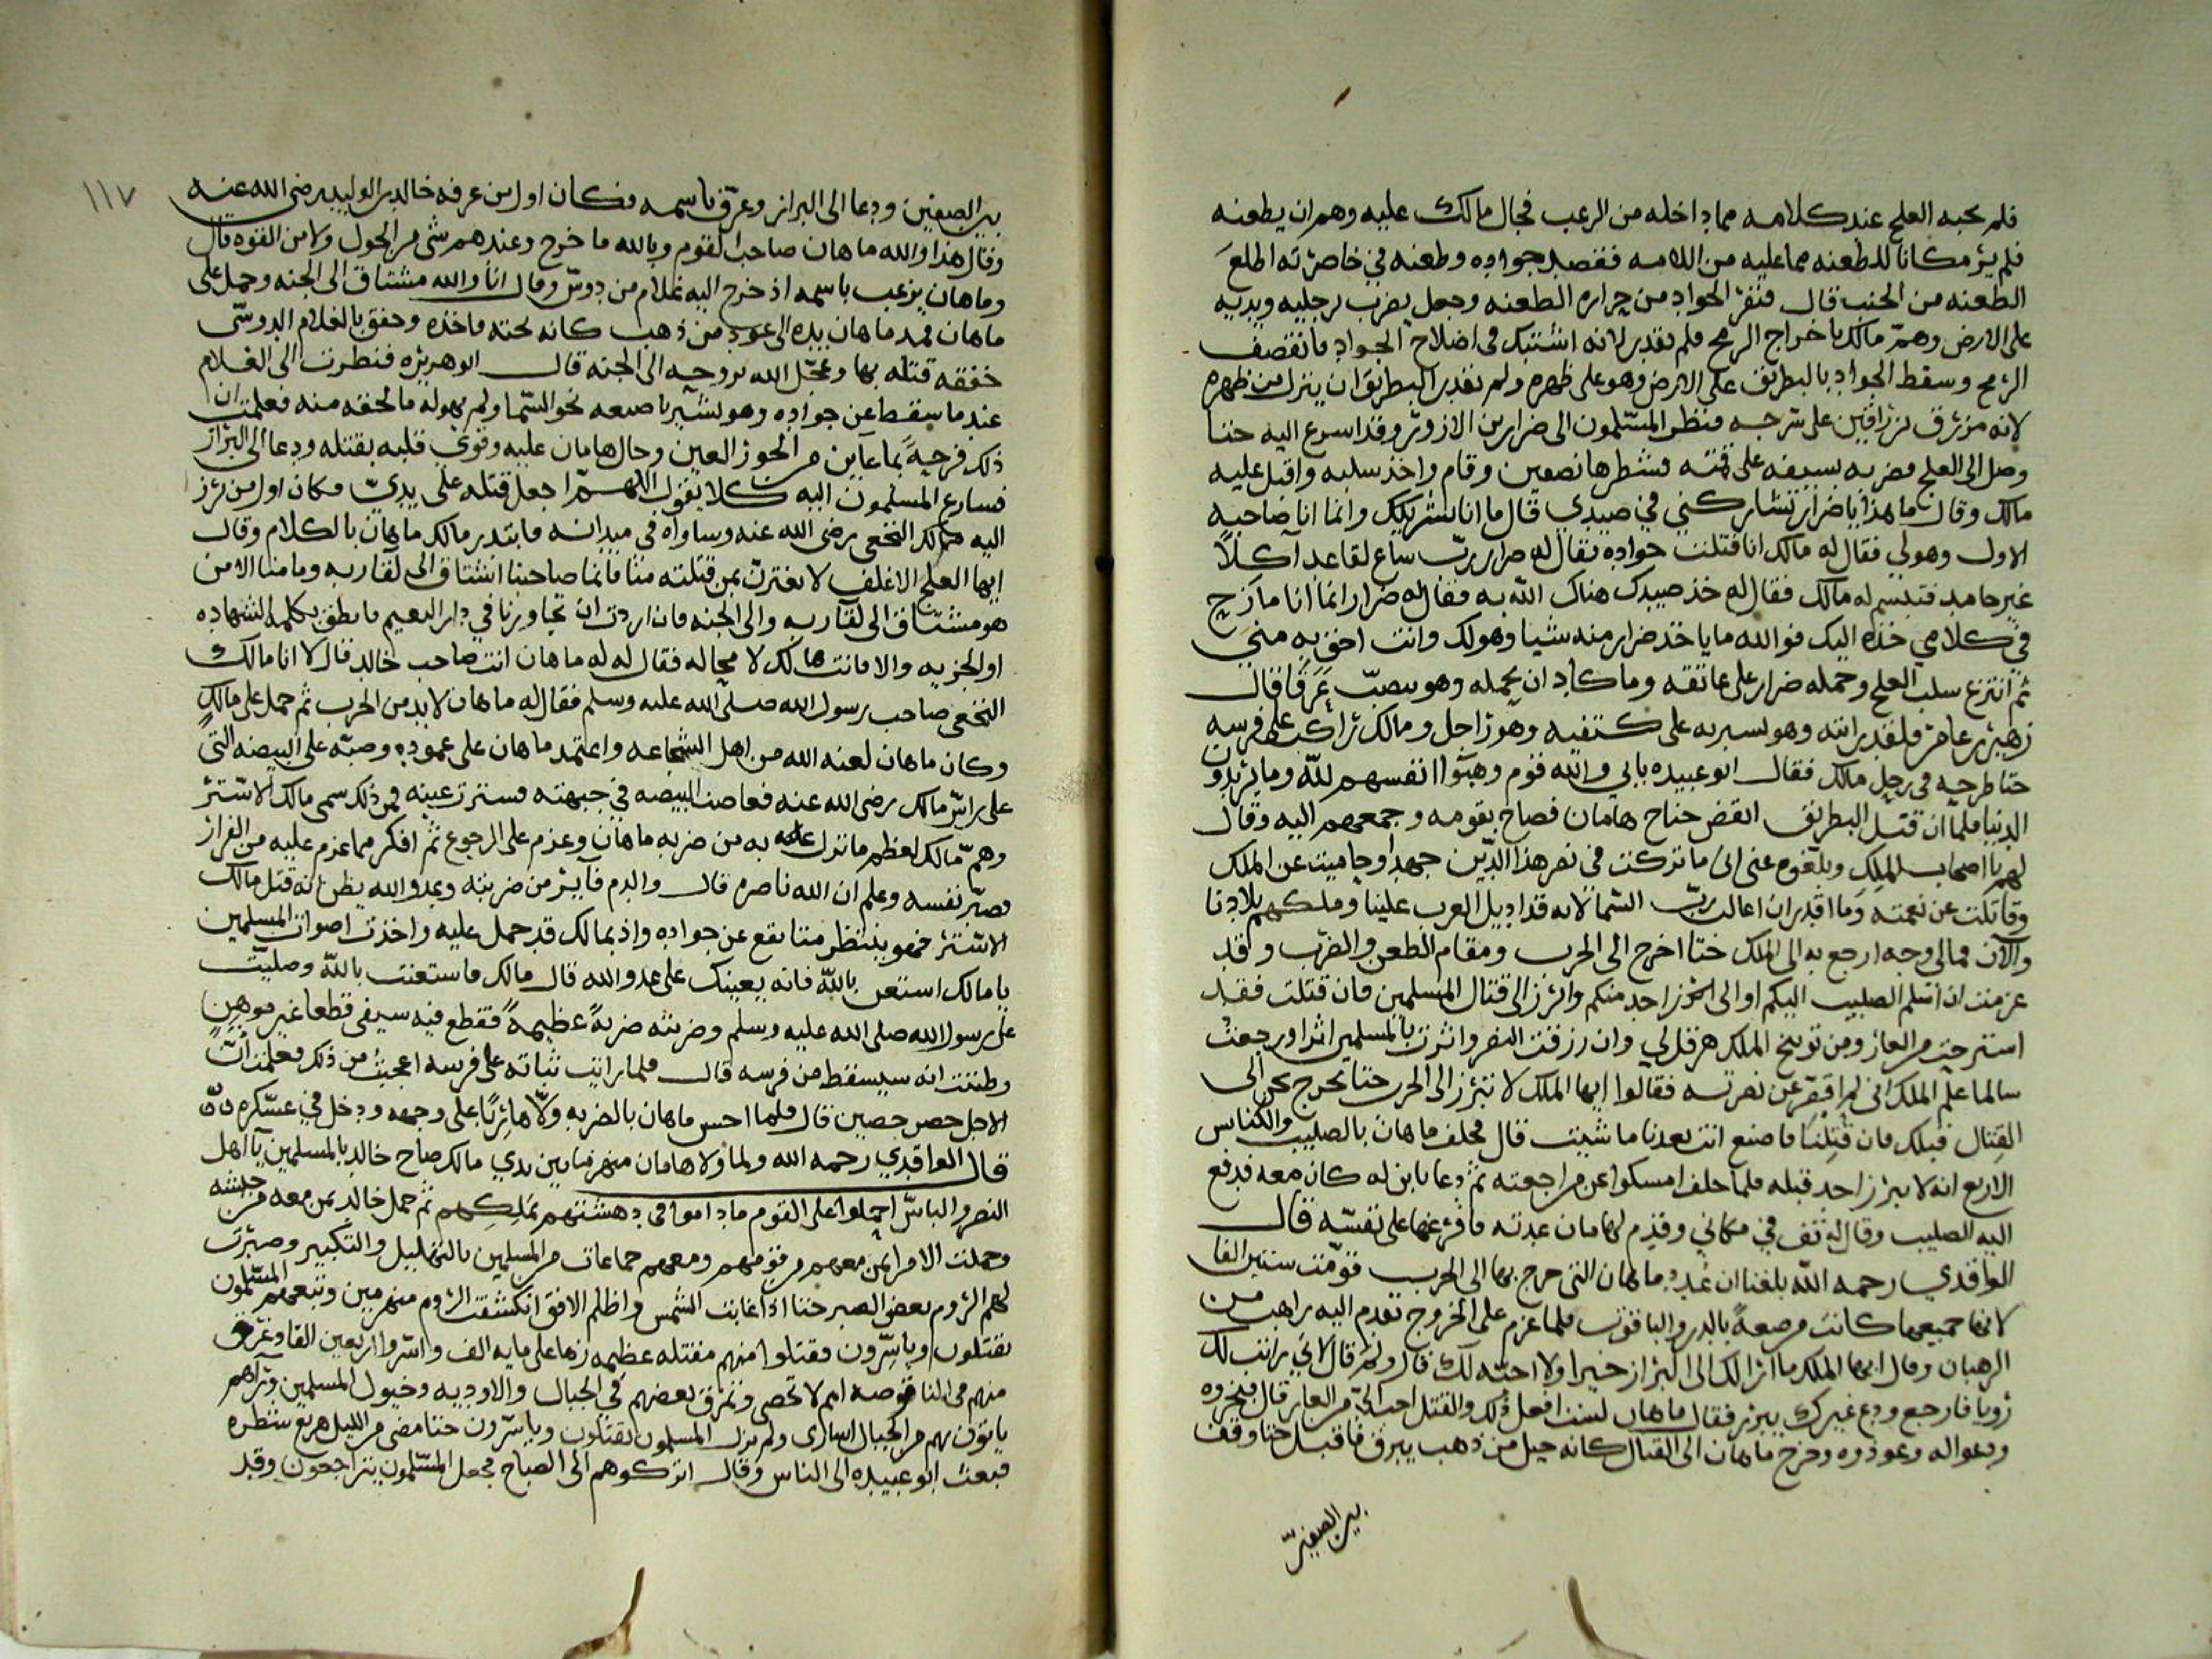 فلم يجبه العلج عند كلامه مما داخله من الرعب فجال مالك عليه وهم ان يطعنه
فلم ير مكانا للطعنه مما عليه من اللامه فقصد جواده وطعنه في خاصرته اطلع
الطعنه من الجنب قال فنفر الجواد من حراره الطعنه وجعل يضرب برجليه ويديه
على الارض وهمّ مالك باخراج الرمح فلم يقدر لانه اشتبك في اضلاع الجواد فانقصف
الرمح وسقط الجواد بالبطريق على الارض وهو على ظهره ولم يقدر البطريق ان ينزل من ظهره
لانه مزرق بزراقين على سرجه فنظر المسلمون الى ضرار بن الازور وقد اسرع اليه حتا
وصل الى العلج فضربه بسيفه على قمته فشطرها نصفين وقام واخذ سلبه واقبل عليه
مالك وقال ما هذا يا ضرار تشاركني في صيدي قال ما انا بشريكك وانما انا صاحبه
الاول وهو لي فقال له مالك انا قتلت جواده فقال له ضرار رب ساع لقاعد آكلاً
غير حامد فتبسم له مالك فقال له خذ صيدك هناك الله به فقال له ضرار انما انا مازح
في كلامي خذه اليك فوالله ما ياخذ ضرار منه شيا وهو لك وانت احق به مني
ثم انتزع سلب العلج وحمله ضرار على عاتقه وما كاد ان يحمله وهو يصبّ عَرَقًا قال
زهير بن عامر فلقد رايته وهو يسير به على كتفيه وهو راجل ومالك راكب على فرسه
حتا طرحه في رحل مالك فقال ابو عبيده بابي والله قوم وهبوا انفسهم لله وما يريدون
الدنيا فلما ان قتل البطريق انقض جناح هامان فصاح بقومه وجمعهم اليه وقال
لهم يا اصحاب الملك وبلغوه عني اني ما تركت في نصر هذا الدين جهدا وحاميت عن الملك
وقاتلت عن نعمته وما اقدر ان اغالب ربّ السما لانه قد اديل العرب علينا وملكهم بلادنا
والآن فمالي وجه ارجع به الى الملك حتا اخرج الى الحرب ومقام الطعن والضرب وقد
عزمت ان اسلم الصليب اليكم او الى احد منكم وابرز الى قتال المسلمين فان قتلت فقد
استرحت من العار ومن توبيخ الملك هرقل لي وان رزقت النصر واثرت بالمسلمين اثرا ورجعت
سالما علم الملك اني لم اقصر عن نصرته فقالوا ايها الملك لا تبرز الى الحرب حتا نخرج نحن الى
القتال قبلك فان قتلنا فاصنع انت بعدنا ما شيت قال فحلف ماهان بالصليب والكنايس
الاربع انه لا يبرز احد قبله فلما حلف امسكوا عن مراجعته ثم دعا بابن له كان معه فدفع
اليه الصليب وقال له قف في مكاني وقدم لهامان عدته فافرغها على نفسه قال
الواقدي رحمه الله بلغنا ان عدد ماهان التي خرج بها الى الحرب قومت ستين الفا
لانها جميعها كانت مرصعة بالدر والياقوت فلما عزم على الخروج تقدم اليه راهب من
الرهبان وقال ايها الملك ما ارا لك الى البراز خيرا ولا احبه لك قال ولم قال لاني رايت لك
رويا فارجع ودع غيرك يبرز فقال ماهان لست افعل ذلك والقتل احب الي من العار قال فبخروه
ودعوا له وعوذوه وخرج ماهان الى القتال كانه جبل من ذهب يبرق فاقبل حتا وقف
بين الصفين
١١٧
بين الصفين ودعا الى البراز وعرّف باسمه فكان اول من عرفه خالد بن الوليد رضى الله عنه
وقال هذا والله ماهان صاحب القوم وبالله ما خرج وعندهم شى من الحول ولا من القوه قال
وماهان يزعب باسمه اذ خرج اليه غلام من دوس وقال انا والله مشتاق الى الجنه وحمل على
ماهان فمد ماهان بيده الى عمود من ذهب كانه تحته فاخذه وخفق بالغلام الدوسي
خفقه قتله بها وعجّل الله بروحه الى الجنه قال ابو هريره فنظرت الى الغلام
عند ما سقط عن جواده وهو يشير باصبعه نحو السما ولم يهوله ما لحقه منه فعلمت ان
ذلك فرحةً بما عاين من الحور العين وجال هامان عليه وقوي قلبه بقتله ودعا الى البراز
فسارع المسلمون اليه كلا يقول اللهم اجعل قتله على يديّ فكان اول من برز
اليه مالك النخعي رضى الله عنه وساواه في ميدانه فابتدر مالك ماهان بالكلام وقال
ايها العلج الاغلف لا تغترن بمن قتلته منا فانما صاحبنا اشتاق الى لقا ربه وما منا الا من
هو مشتاق الى لقا ربه والى الجنه فان اردت ان تجاورنا في دار النعيم فانطق بكلمه الشهاده
او الجزيه والا فانت هالك لا محاله فقال له ماهان انت صاحب خالد قال لا انا مالك
النخعي صاحب رسول الله صلى الله عليه وسلم فقال له ماهان لا بد من الحرب ثم حمل على مالك
وكان ماهان لعنه الله من اهل الشجاعه واعتمد ماهان على عموده وصبّه على البيضه التي
على راس مالك رضى الله عنه فغاصت البيضه في جبهته فسترت عينه فمن ذلك سمى مالك الاشتر
وهمّ مالك لعظم ما نزل به من ضربه ماهان وعزم على الرجوع ثم افكر مما عزم عليه من الفرار
فصبّر نفسه وعلم ان الله ناصره قال والدم فاير من ضربته وعدو الله يظن انه قتل مالك
الاشتر فهو ينتظر متا يقع عن جواده واذ بمالك قد حمل عليه واخذت اصوات المسلمين
يا مالك استعن بالله فانه يعينك على عدو الله قال مالك فاستعنت بالله وصليت
على رسول الله صلى الله عليه وسلم وضربته ضربةً عظيمةً فقطع فيه سيفي قطعا غير موهنٍ
وظننت انه سيسقط من فرسه قال فلما رايت ثباته على فرسه اعجبت من ذلك فعلمت انّ
الاجل حصن حصين قال فلما احس ماهان بالضربه ولّا هاربًا على وجهه ودخل في عسكره
قال الواقدي رحمه الله ولما ولا هامان منهزما بين يدي مالك صاح خالد بالمسلمين يا اهل
النصر والباس احملوا على القوم ما داموا في دهشتهم بملكهم ثم حمل خالد بمن معه من جيشه
وحملت الامرا بمن معهم من قومهم ومعهم جماعات من المسلمين بالتهليل والتكبير وصبرت
لهم الروم بعض الصبر حتا اذا غابت الشمس واظلم الافق انكشفت الروم منهزمين وتبعهم المسلمون
يقتلون وياسرون فقتلوا منهم مقتله عظيمه زها على مايه الف واسروا اربعين الفا وغرق
منهم في الناقوصة امم لا تحصى وتفرق بعضهم في الجبال والاوديه وخيول المسلمين وراهم
ياتون بهم من الجبال اسارى ولم يزل المسلمون يقتلون وياسرون حتا مضى من الليل شطره
فبعث ابو عبيده الى الناس وقال اتركوهم الى الصباح فجعل المسلمون يتراجعون وقد